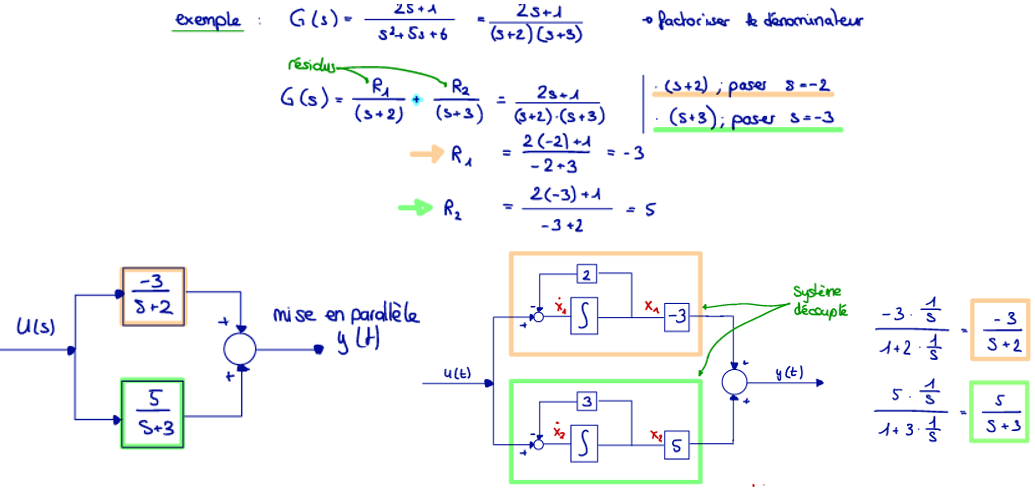 exemple : G(s) = (2s+1)/(s²+5s+6) = (2s+1)/((s+2)(s+3)) → factoriser le dénominateur
résidus
G(s) = R₁/(s+2) + R₂/(s+3) = (2s+1)/((s+2)·(s+3))
· (s+2) ; poser s=-2
· (s+3) ; poser s=-3
→ R₁ = (2(-2)+1)/(-2+3) = -3
→ R₂ = (2(-3)+1)/(-3+2) = 5
U(s)
-3/(s+2)
5/(s+3)
+
+
mise en parallèle
y(t)
u(t)
2
-
+
ẋ₁
∫
x₁
-3
3
-
+
ẋ₂
∫
x₂
5
système
découplé
+
+
y(t)
(-3·1/s)/(1+2·1/s) = -3/(s+2)
(5·1/s)/(1+3·1/s) = 5/(s+3)